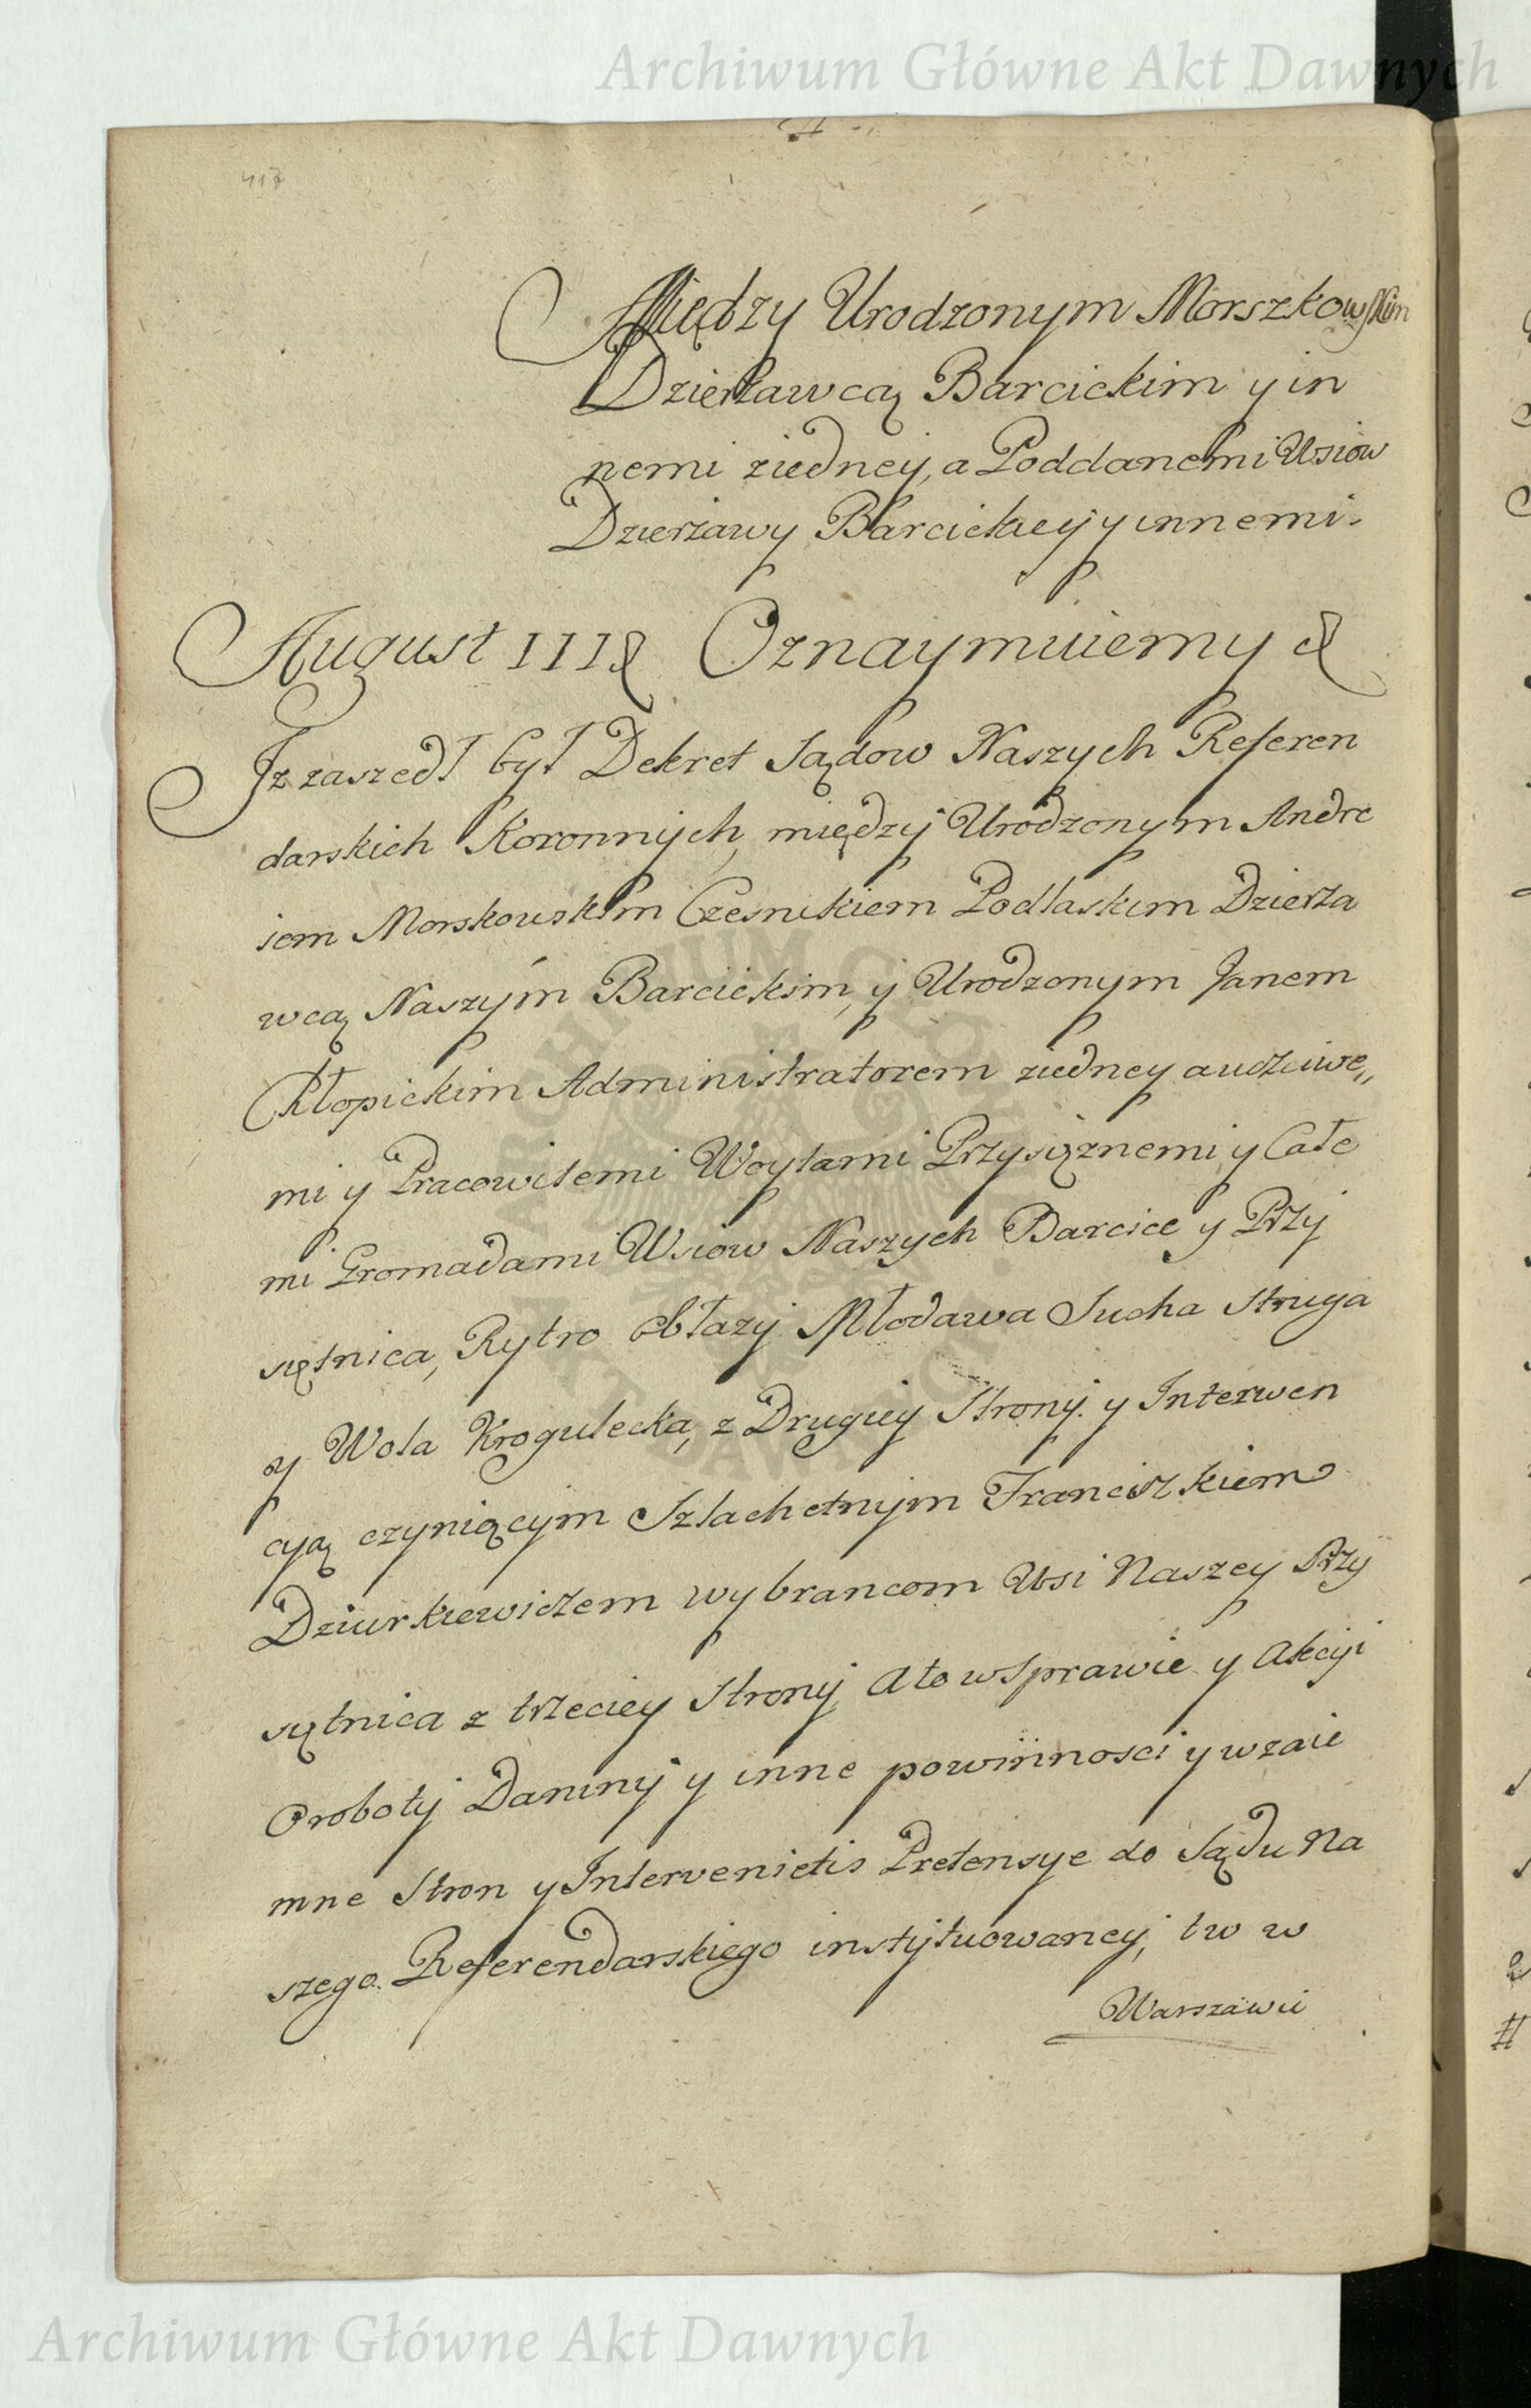 Archiwum Główne Akt Dawnych
413
Między Urodzonym Morszkowskim
Dzierżawcą Barcickim y in
nemi ziedney, a Poddanemi Wsiow
Dzierżawy Barcickiey y innemi.
August III& Oznaymuiemy &
Iz zaszedł był Dekret Sądow Naszych Referen
darskich Koronnych, między Urodzonym Andrе
iem Morskowskim Czesnikiem Podlaskim Dzierża
wcą Naszym Barcickim, y Urodzonym Janem
Chłopickim Administratorem ziedney a uczciwe„
mi y Pracowitemi Woytami Przysiężnemi y Całe
mi Gromadami Wsiow Naszych Barcice y Przy
siętnica, Rytro Obłazy Młodawa Sucha Struga
y Wola Krogulecka, z Drugiey Strony. y Interwen
cyą czyniącym Szlachetnym Franciszkiem
Dziurkiewiczem wybrancom Wsi Naszey Przy
siętnica z trzeciey Strony Ato w Sprawie y Akcyi
Oroboty Daniny y inne powinnosci y wzaie
mne Stron y Intervenietis Pretensye do Sądu Na
szego Referendarskiego instytuowaney, tu w
Warszawie
Archiwum Główne Akt Dawnych